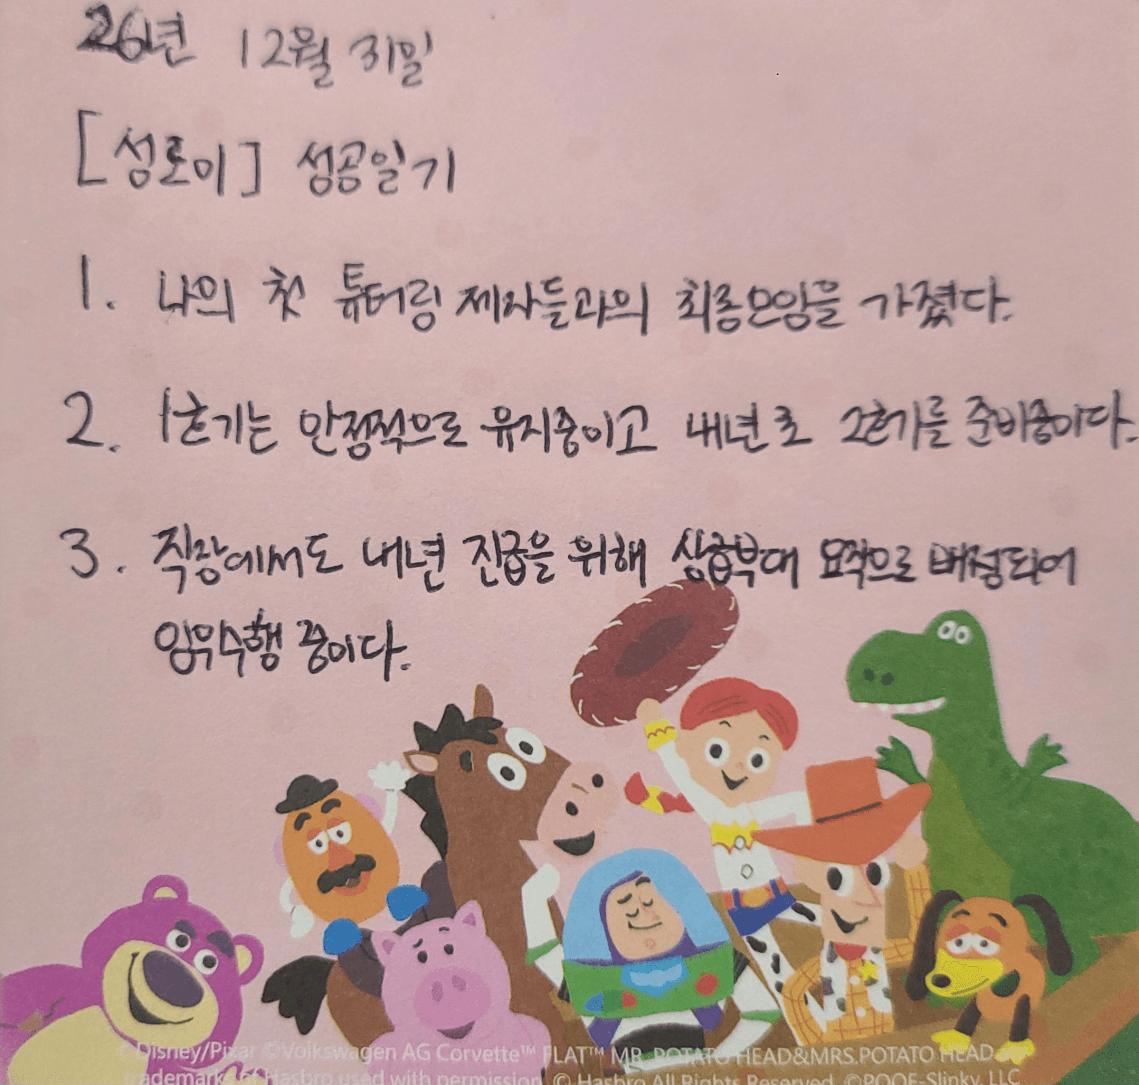 26년 12월 31일
[성로이] 성공일기
1. 나의 첫 튜터링 제자들과의 최종모임을 가졌다.
2. 1호기는 안정적으로 유지중이고 내년초 2호기를 준비중이다.
3. 직장에서도 내년 진급을 위해 상급부대 요직으로 배정되어
임무수행 중이다.
©Disney/Pixar ©Volkswagen AG Corvette™ FLAT™ MR. POTATO HEAD&MRS.POTATO HEAD
trademarks of Hasbro used with permission. © Hasbro All Rights Reserved. ©POOF-Slinky, LLC